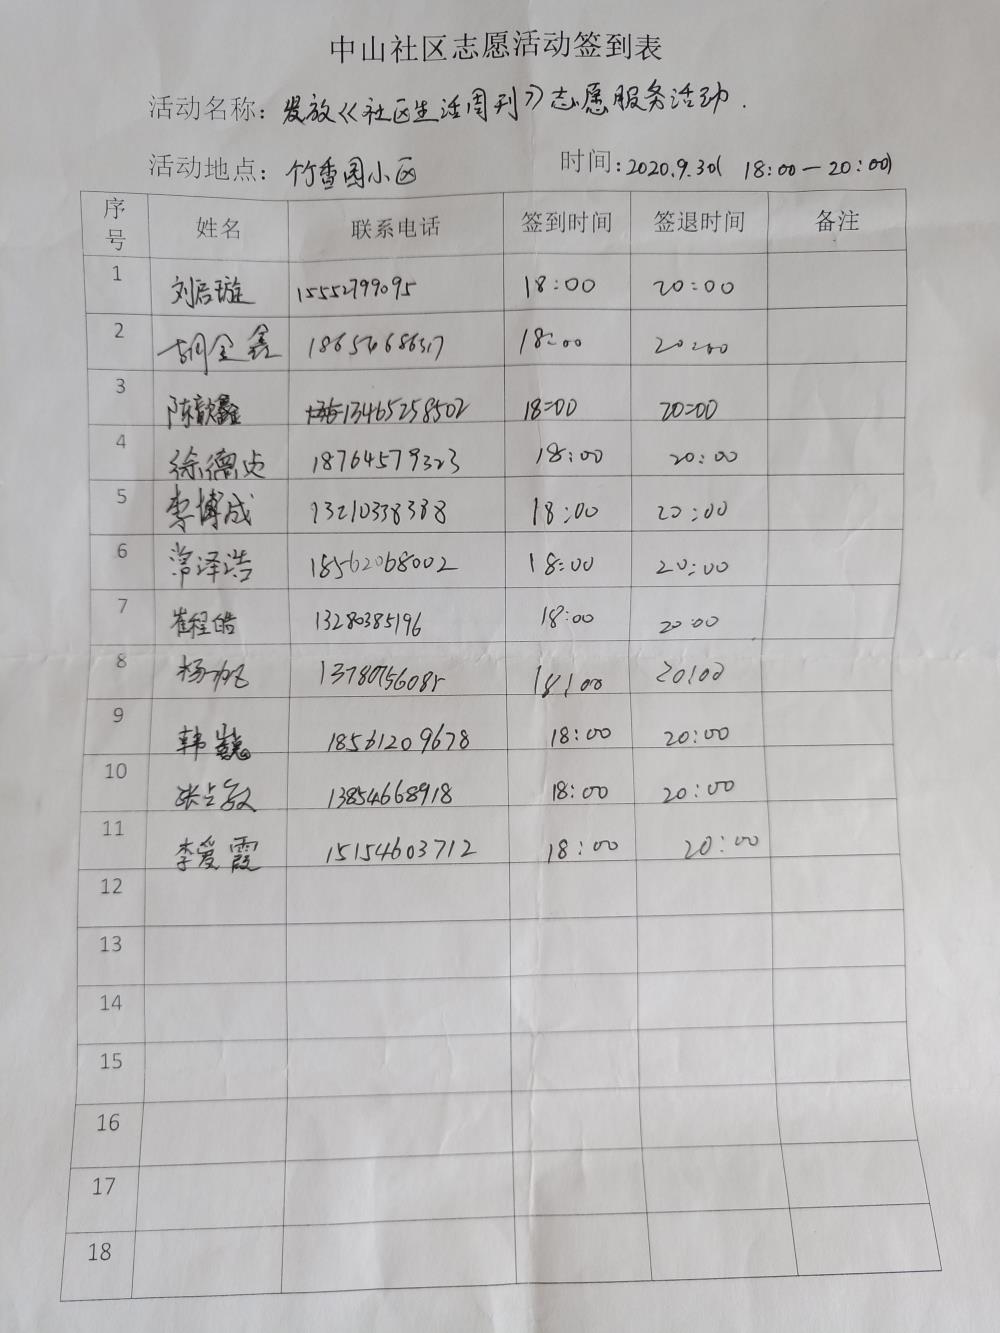 中山社区志愿活动签到表
活动名称: 发放《社区生活周刊》志愿服务活动.
活动地点: 竹香园小区 时间: 2020.9.30( 18:00—20:00)
序号 姓名 联系电话 签到时间 签退时间 备注
1 刘启璇 15552799095 18:00 20:00
2 胡金鑫 18:00 20:00
3 陈歆鑫 13465258502 18:00 20:00
4 徐德贞 18764579323 18:00 20:00
5 李博成 13210338388 18:00 20:00
6 常泽浩 18562068002 18:00 20:00
7 崔程皓 13280385196 18:00 20:00
8 杨帆 18:00 20:00
9 韩巍 18561209678 18:00 20:00
10 张占敏 13854668918 18:00 20:00
11 李爱霞 15154603712 18:00 20:00
12
13
14
15
16
17
18